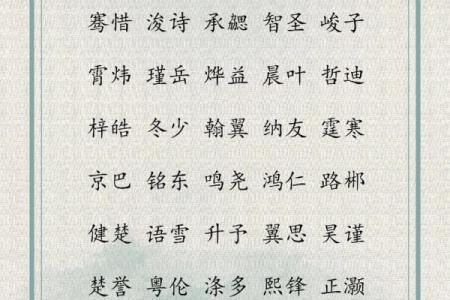 骞惜 浚诗 承勰 智圣 峻子
霄炜 瑾岳 烨益 晨叶 哲迪
梓皓 冬少 翰翼 纳友 霆寒
京巴 铭东 鸣尧 鸿仁 路郴
健楚 语雪 升予 翼思 昊谨
楚誉 粤伦 涤多 熙锋 正灏